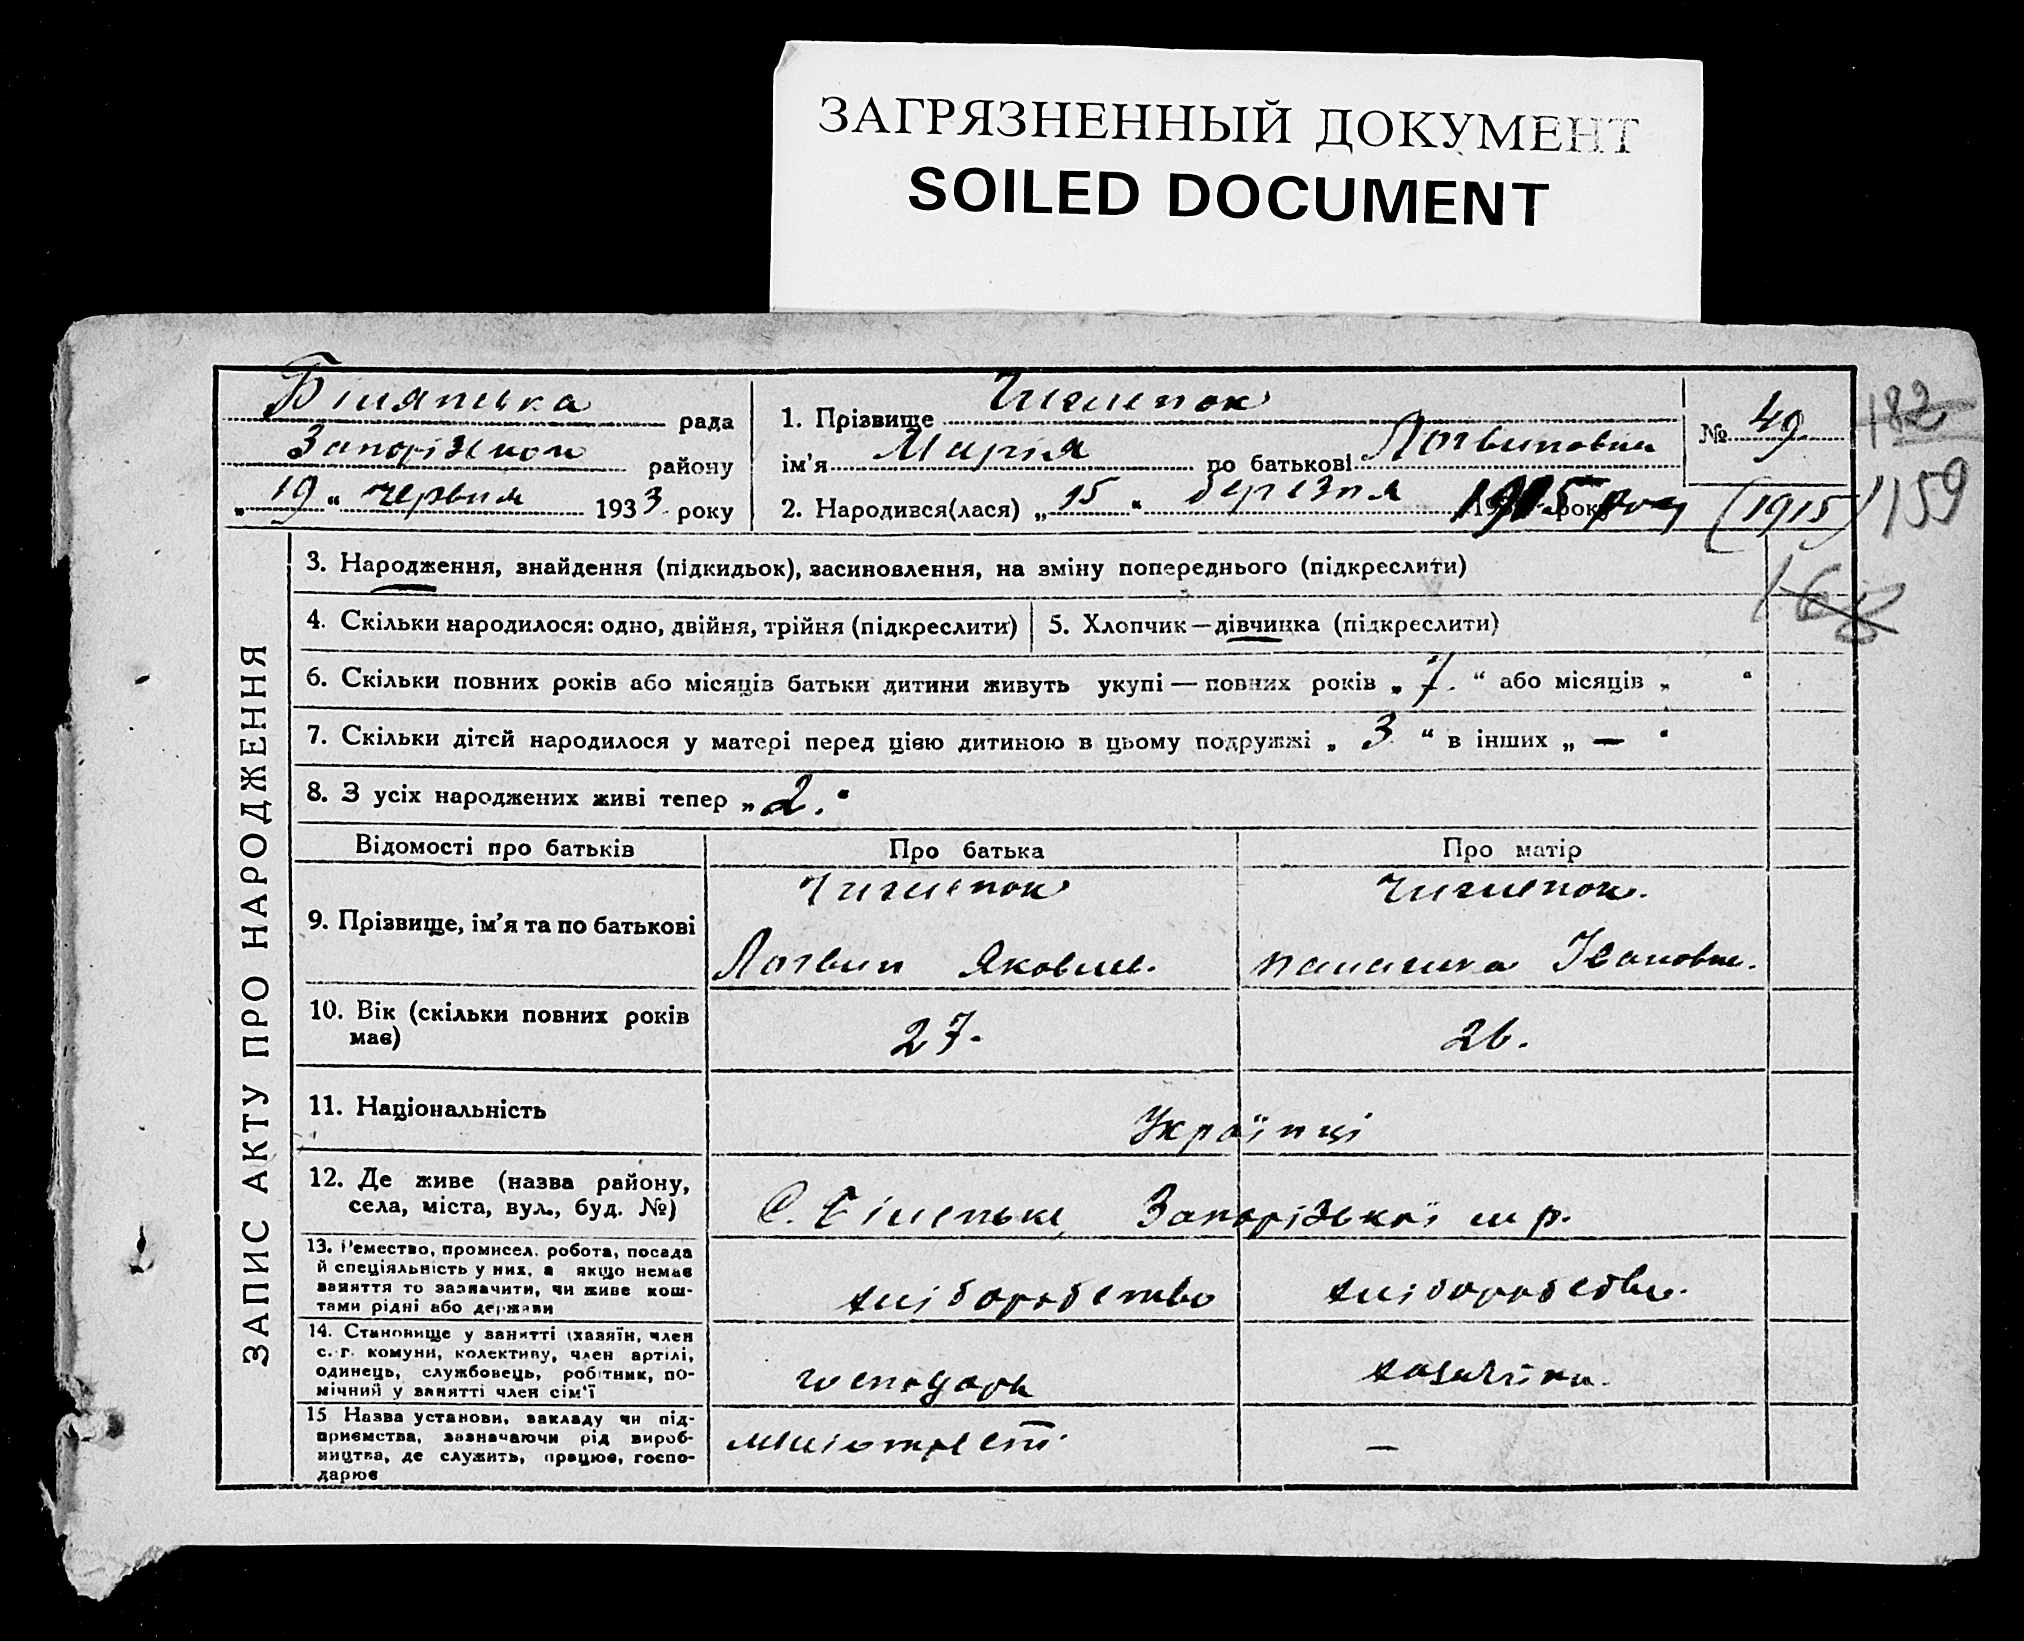 ЗАГРЯЗНЕННЫЙ ДОКУМЕНТ
SOILED DOCUMENT
рада
1. Прізвище Чигиленок
№ 49
182
району
ім'я Марія по батькові Логвиновна
„19“ червня 1933 року
2. Народився(лася) „15“ березня 1915 року
(1915)
1159
168
ЗАПИС АКТУ ПРО НАРОДЖЕННЯ
3. Народження, знайдення (підкидьок), засиновлення, на зміну попереднього (підкреслити)
4. Скільки народилося: одно, двійня, трійня (підкреслити)
5. Хлопчик — дівчинка (підкреслити)
6. Скільки повних років або місяців батьки дитини живуть укупі — повних років „7.“ або місяців „ “
7. Скільки дітей народилося у матері перед цією дитиною в цьому подружжі „3“ в інших „—“
8. З усіх народжених живі тепер „2.“
Відомості про батьків
Про батька
Про матір
9. Прізвище, ім'я та по батькові
Логвин Яковлев.
Івановна.
10. Вік (скільки повних років
має)
27.
26.
11. Національність
Українці
12. Де живе (назва району,
села, міста, вул., буд. №)
С. Біленьке, Запорізької м р.
13. Ремество, промисел, робота, посада
й спеціяльність у них, а якщо немає
заняття то зазначити, чи живе кош-
тами рідні або держави
хліборобство
хліборобство.
14. Становище у занятті (хазяїн, член
с.-г. комуни, колективу, член артілі,
одинець, службовець, робітник, по-
мічний у занятті член сім'ї
господарь
хазяйка.
15 Назва установи, закладу чи під-
приємства, зазначаючи рід вироб-
ництва, де служить, працює, госпо-
дарює
—